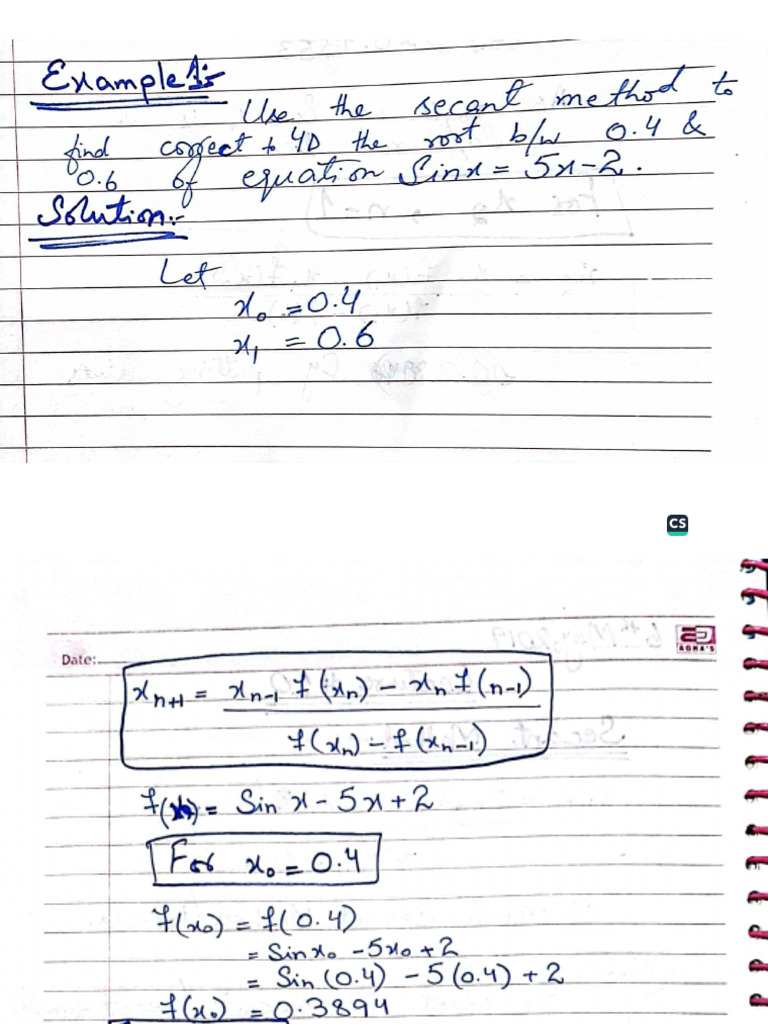 Example 1:-
Use the secant method to
find correct to 4D the root b/w 0.4 &
0.6 of equation Sinx = 5x-2.
Solution:-
Let
x₀ = 0.4
x₁ = 0.6
CS
AGHA'S
Date:
xₙ₊₁ = xₙ₋₁ f(xₙ) - xₙ f(n-1)
f(xₙ) - f(xₙ₋₁)
f(x) = Sin x - 5x + 2
For x₀ = 0.4
f(x₀) = f(0.4)
= Sin x₀ - 5x₀ + 2
= Sin (0.4) - 5(0.4) + 2
f(x₀) = 0.3894